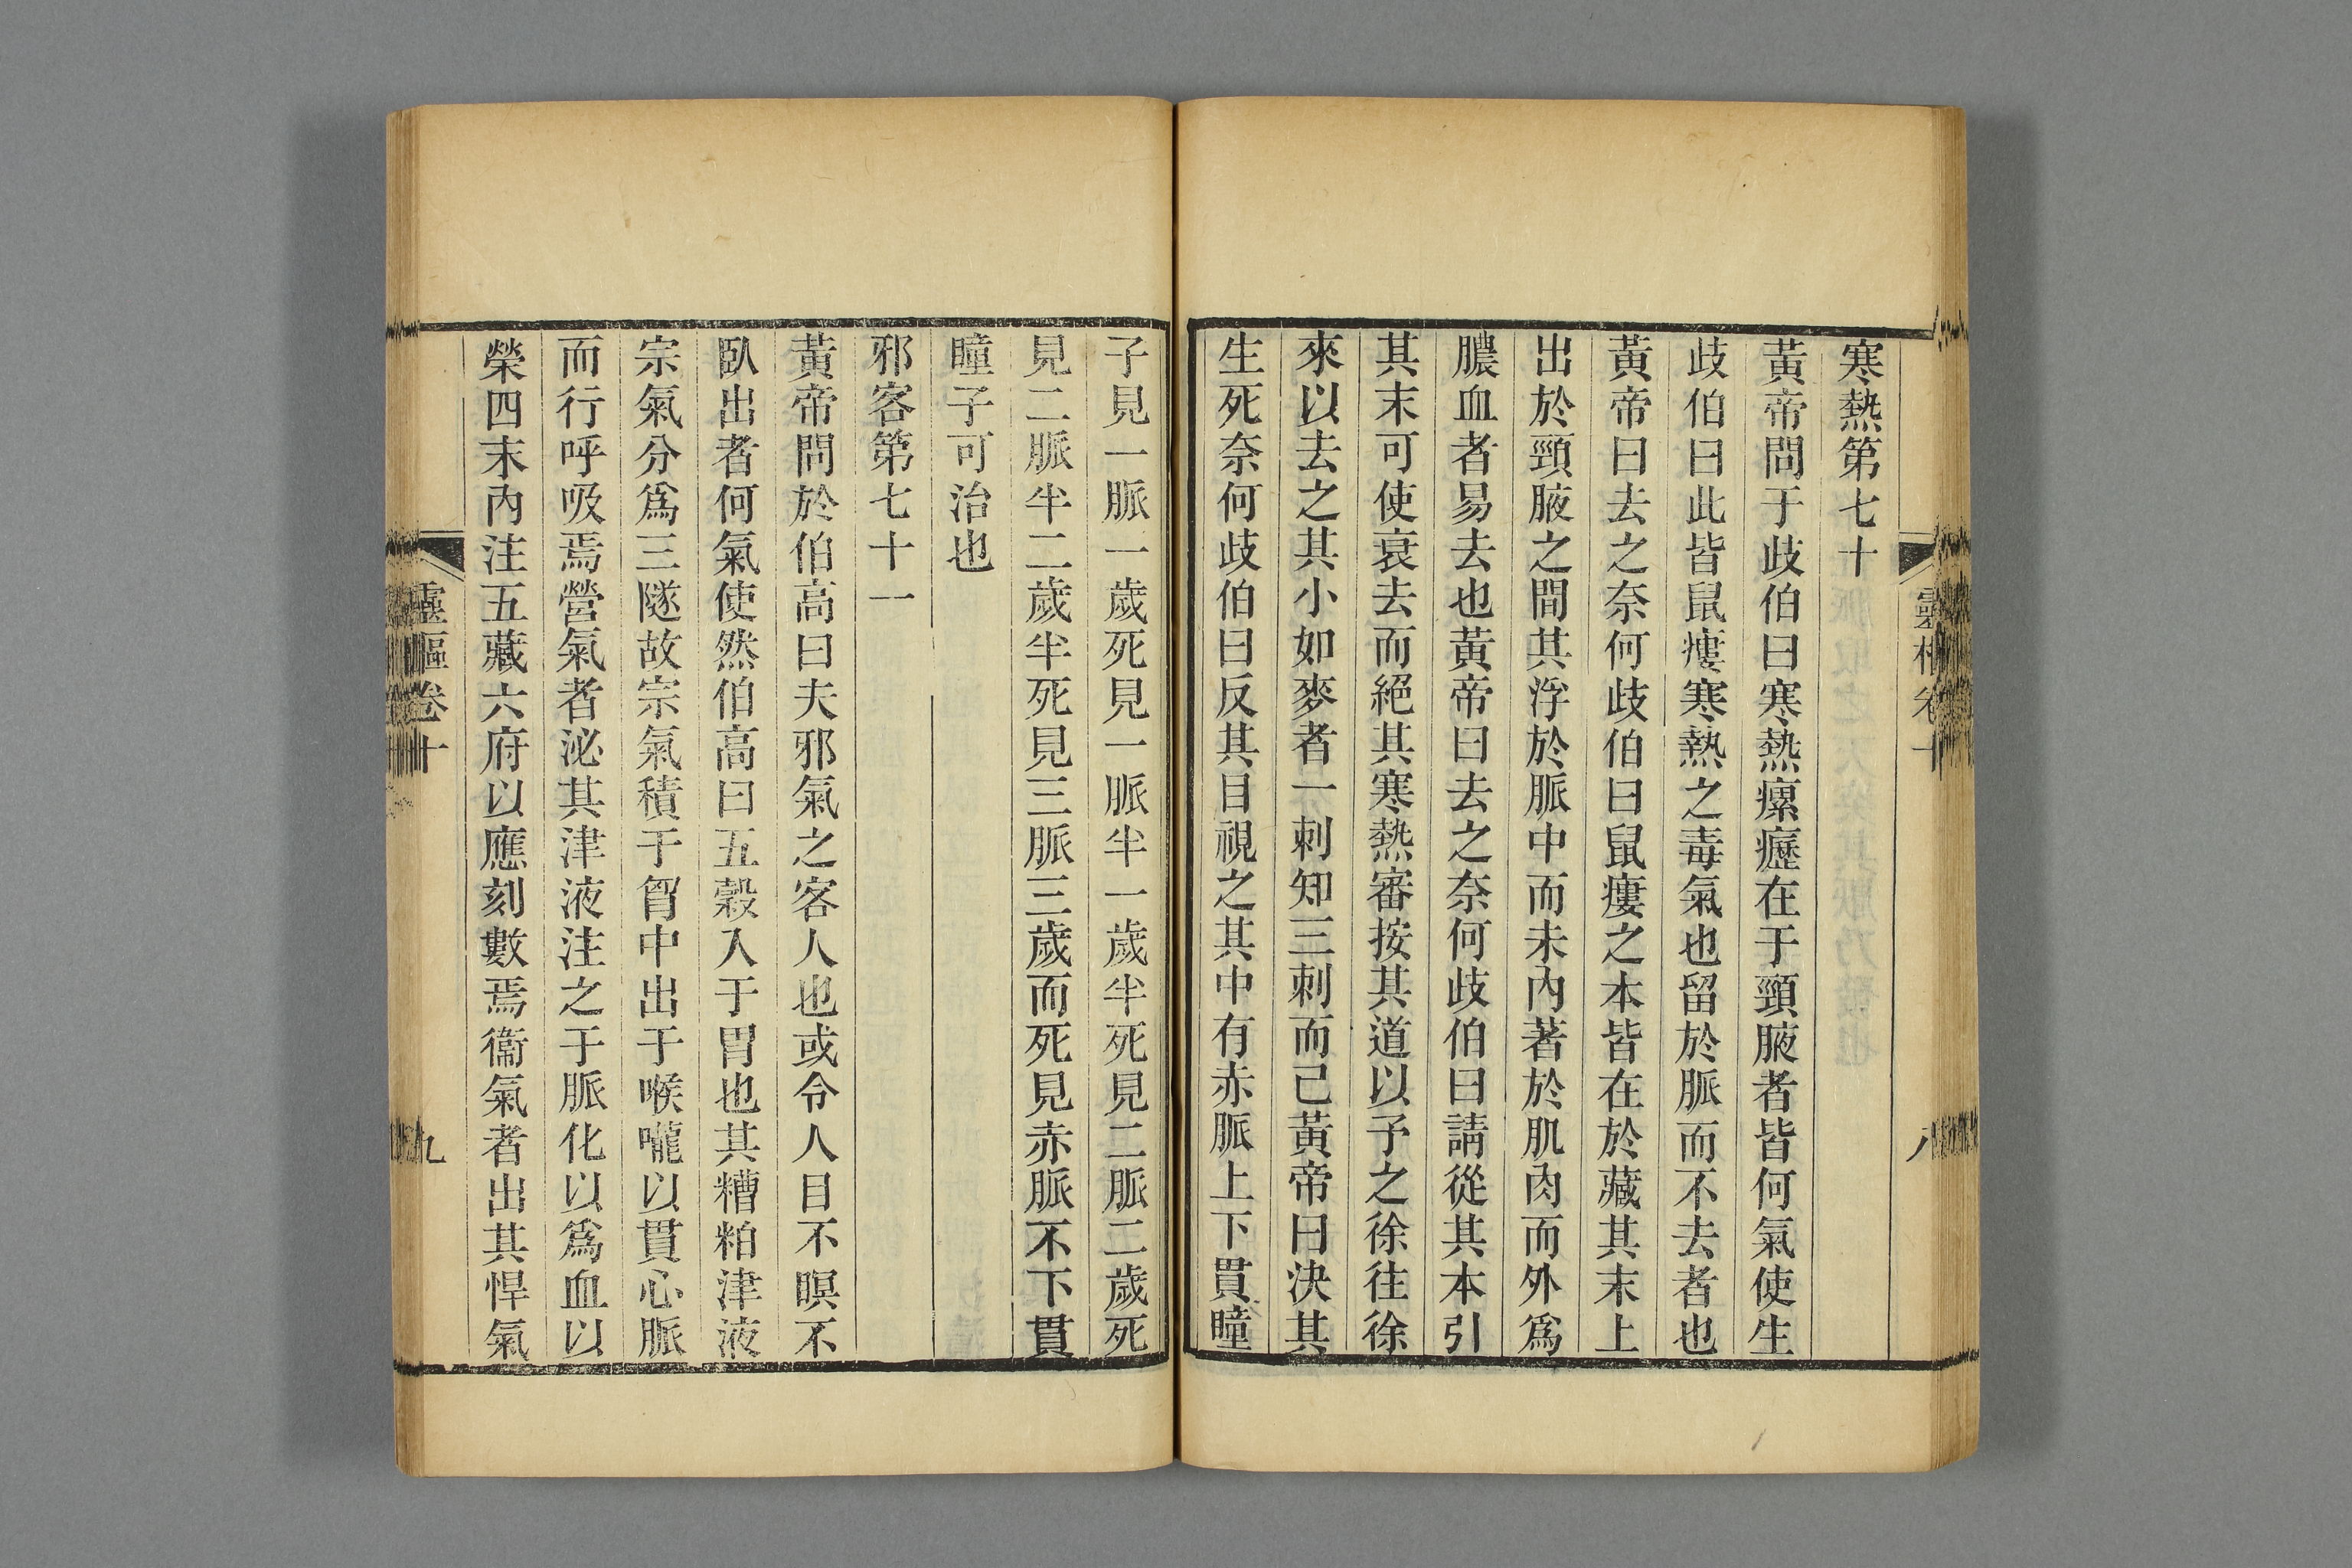 寒熱第七十
黃帝問于歧伯曰寒熱瘰癧在于頸腋者皆何氣使生
歧伯曰此皆鼠瘻寒熱之毒氣也留於脈而不去者也
黃帝曰去之奈何歧伯曰鼠瘻之本皆在於藏其末上
出於頸腋之間其浮於脈中而未內著於肌肉而外爲
膿血者易去也黃帝曰去之奈何歧伯曰請從其本引
其末可使衰去而絕其寒熱審按其道以予之徐往徐
來以去之其小如麥者一刺知三刺而已黃帝曰決其
生死奈何歧伯曰反其目視之其中有赤脈上下貫瞳
子見一脈一歲死見一脈半一歲半死見二脈二歲死
見二脈半二歲半死見三脈三歲而死見赤脈不下貫
瞳子可治也
邪客第七十一
黃帝問於伯高曰夫邪氣之客人也或令人目不暝不
臥出者何氣使然伯高曰五穀入于胃也其糟粕津液
宗氣分爲三隧故宗氣積于胷中出于喉嚨以貫心脈
而行呼吸焉營氣者泌其津液注之于脈化以爲血以
榮四末內注五藏六府以應刻數焉衞氣者出其悍氣
靈樞卷十
九